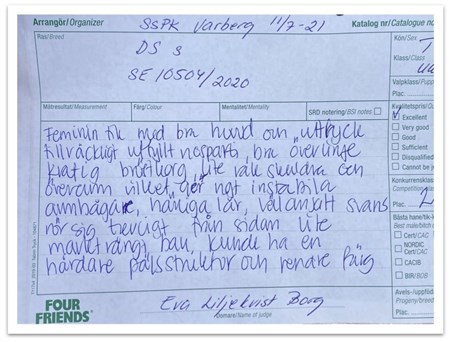 Arrangör/Organizer
SSPK Varberg 11/7-21
Katalog nr/Catalogue no
Ras/Breed
DS s
SE 10504/2020
Kön/Sex T
Klass/Class
Valpklass/Puppy
Plac.
Mätresultat/Measurement Färg/Colour Mentalitet/Mentality SRD notering/BSI notes
Feminin tik med bra huvud och uttryck
tillräckligt utfyllt nosparti, bra överlinje
kraftig bröstkorg, lite rak skuldra och
överarm vilket ger ngt instabila
armbågar, hariga lår, väl ansatt svans
rör sig trevligt från sidan lite
marktrångt bak, kunde ha en
hårdare pälsstruktur och renare färg
Excellent
Very good
Good
Sufficient
Disqualified
Cannot be j
Konkurrensklass
Competition
Plac. 2
Bästa hane/tik
Best male/bitch
Cert/CAC
NORDIC
Cert/CAC
CACIB
BIR/BOB
Avels-/uppföd
Progeny/breed
Plac.
FOUR
FRIENDS
Eva Liljekvist Borg
Domare/Name of judge